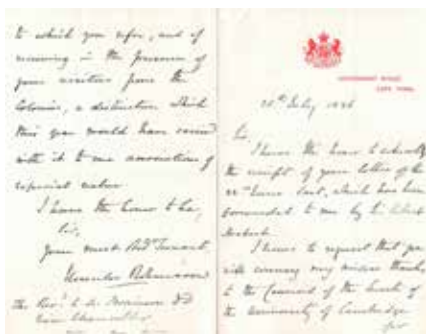 to which you refer, and of
receiving in the presence of
your visitors from the
Colonies, a distinction which
this year would have carried
with it to me associations of
especial value.
I have the honor to be,
Sir,
Your most Obdt Servant
Hercules Robinson
The Revd
Vice Chancellor
GOVERNMENT HOUSE,
CAPE TOWN.
July
Sir,
I have the honor to acknowledge
the receipt of your letter of the
last, which has been
forwarded to me by
I have to request that you
will convey my sincere thanks
to the Council of the Senate of
the University of Cambridge
for